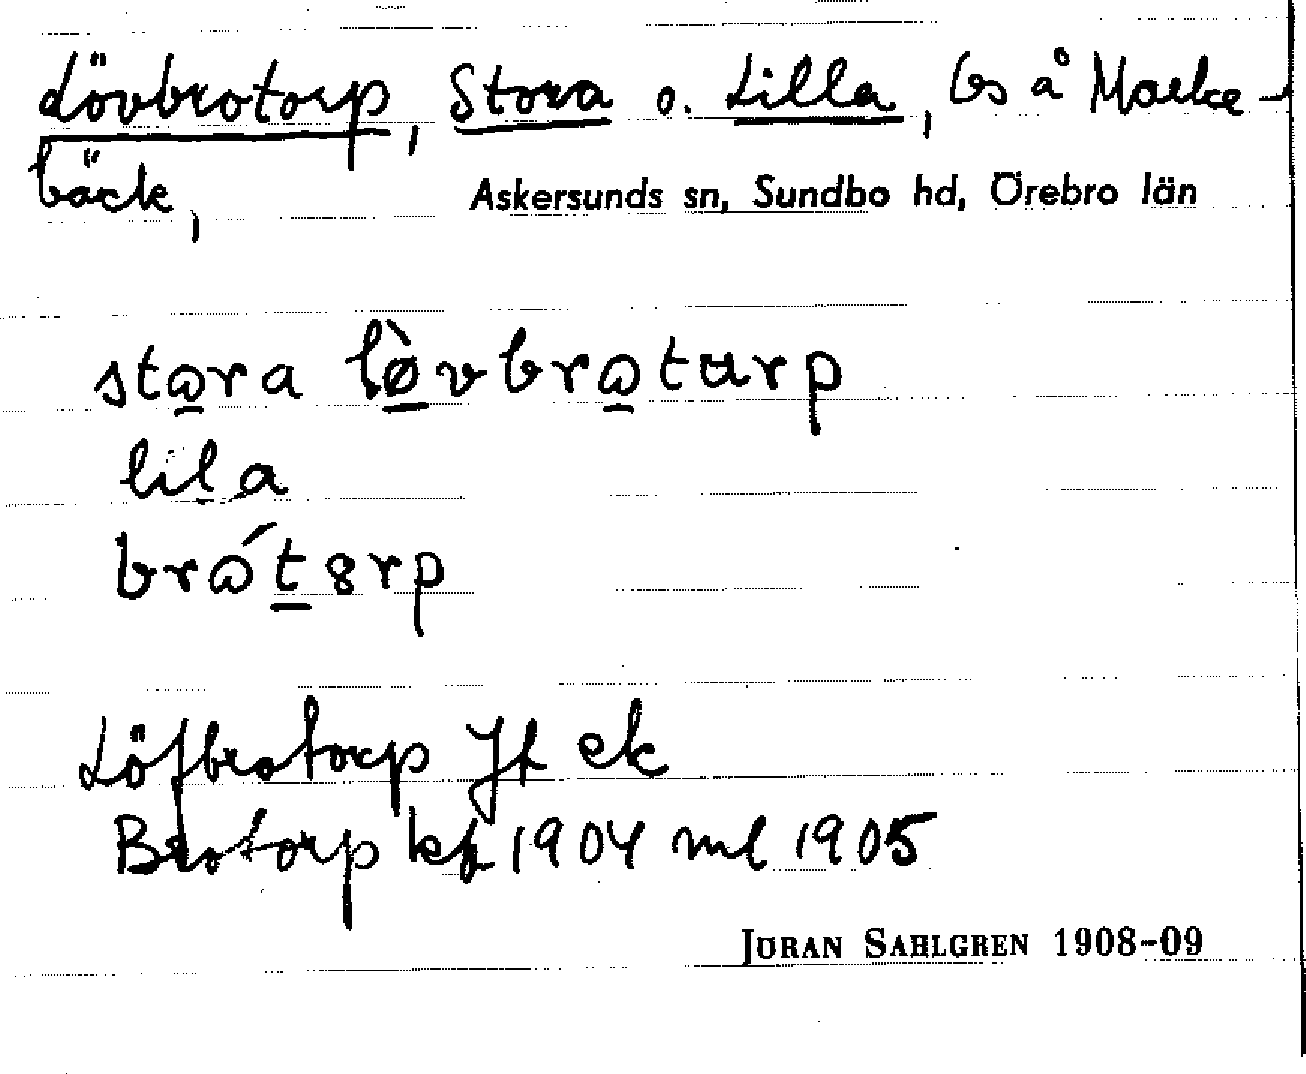 Lövbrotorp, Stora o. Lilla, ls å Marke-
bäck,
Askersunds sn, Sundbo hd, Örebro län
stωra lø̀vbrωturp
lila
brώtɜrp
Löfbrotorp Jk ek
Brotorp kf 1904 ml 1905
JÖRAN SAHLGREN 1908-09